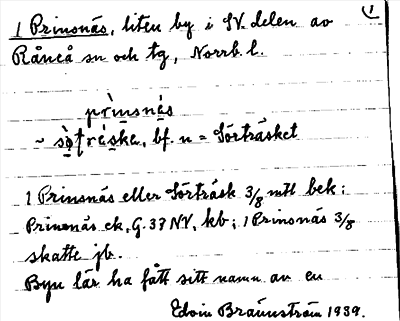 1
1 Prinsnäs, liten by i SV. delen av
Råneå sn och tg, Norrb. l.
prinsnä̀s
~ sò̩t̩räska, bf. n = Sörträsket
1 Prinsnäs eller Sörträsk 3/8 mtl bek:
Prinsnäs ek. G. 33 NV, kb; 1 Prinsnäs 3/8
skatte jb.
Byn lär ha fått sitt namn av en
Edvin Brännström 1939.